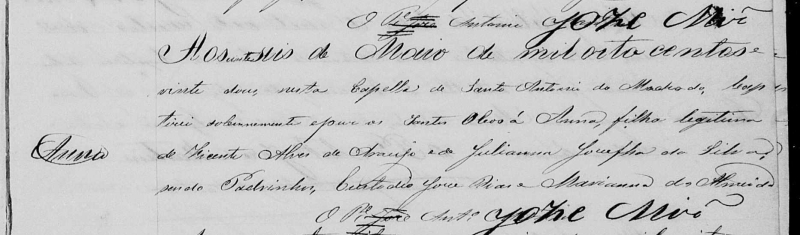 O P.e Antonio Joze Mir.
Aos vinte seis de Maio de mil oito centos e
vinte dous, nesta Capella de Santo Antonio do Machado, bap
tizei solemnemente e puz os Santos Oleos á Anna, filha legitima
Anna
de Vicente Alves de Araujo e de Julianna Josefha da Silva,
sendo Padrinhos, Custodio Joze Dias e Marianna de Almeida
O P.e Ant.o Joze